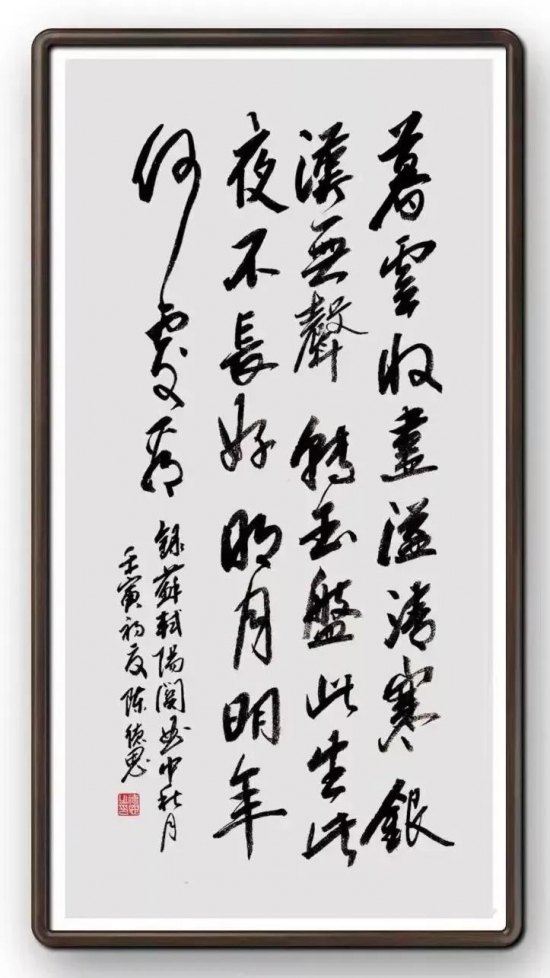 暮雲收盡溢清寒銀
漢無聲轉玉盤此生此
夜不長好明月明年
何處看
錄蘇軾陽關曲中秋月
壬寅初夏陳德